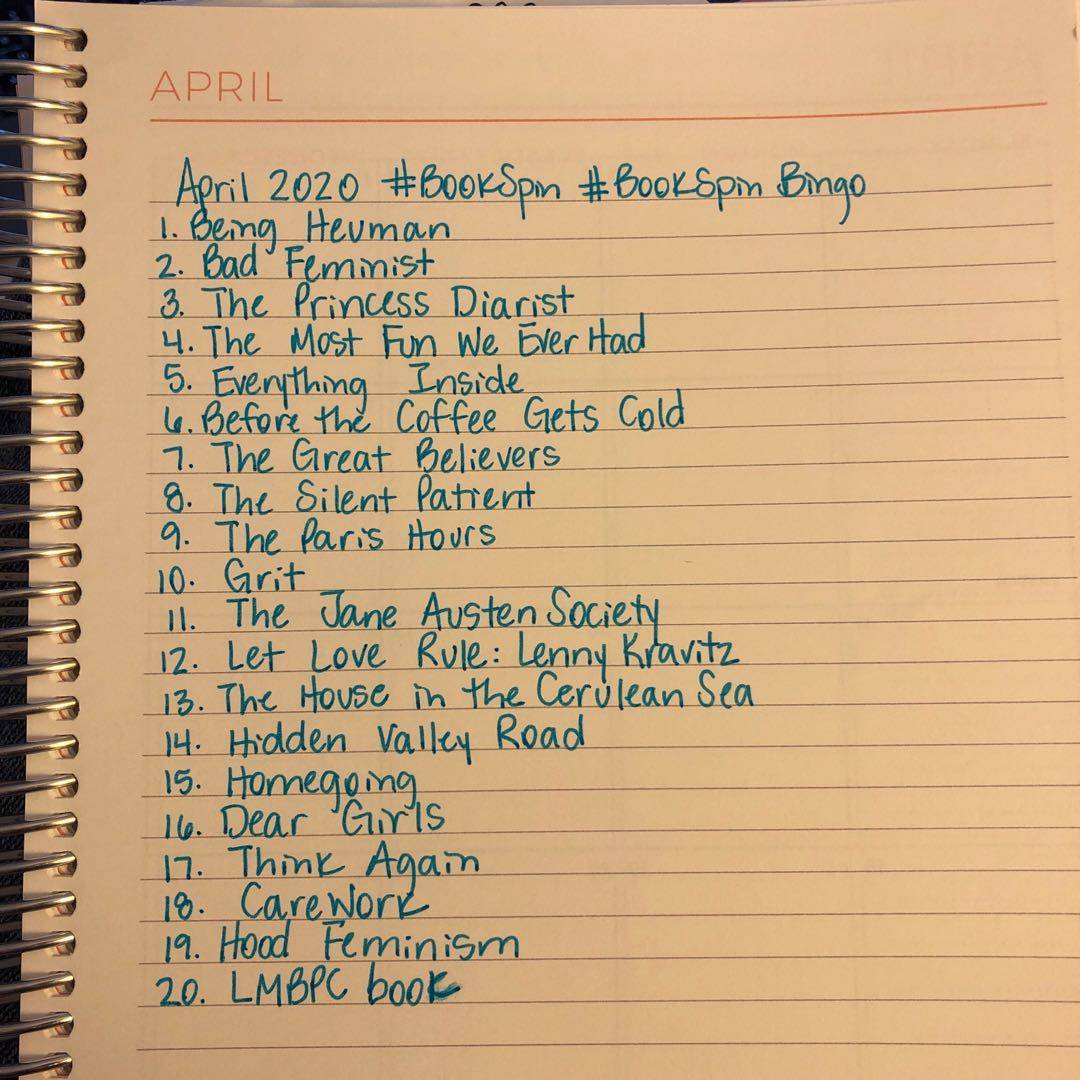 APRIL
April 2020 #BookSpin #BookSpin Bingo
1. Being Heuman
2. Bad Feminist
3. The Princess Diarist
4. The Most Fun We Ever Had
5. Everything Inside
6. Before the Coffee Gets Cold
7. The Great Believers
8. The Silent Patient
9. The Paris Hours
10. Grit
11. The Jane Austen Society
12. Let Love Rule: Lenny Kravitz
13. The House in the Cerulean Sea
14. Hidden Valley Road
15. Homegoing
16. Dear Girls
17. Think Again
18. Care Work
19. Hood Feminism
20. LMBPC book